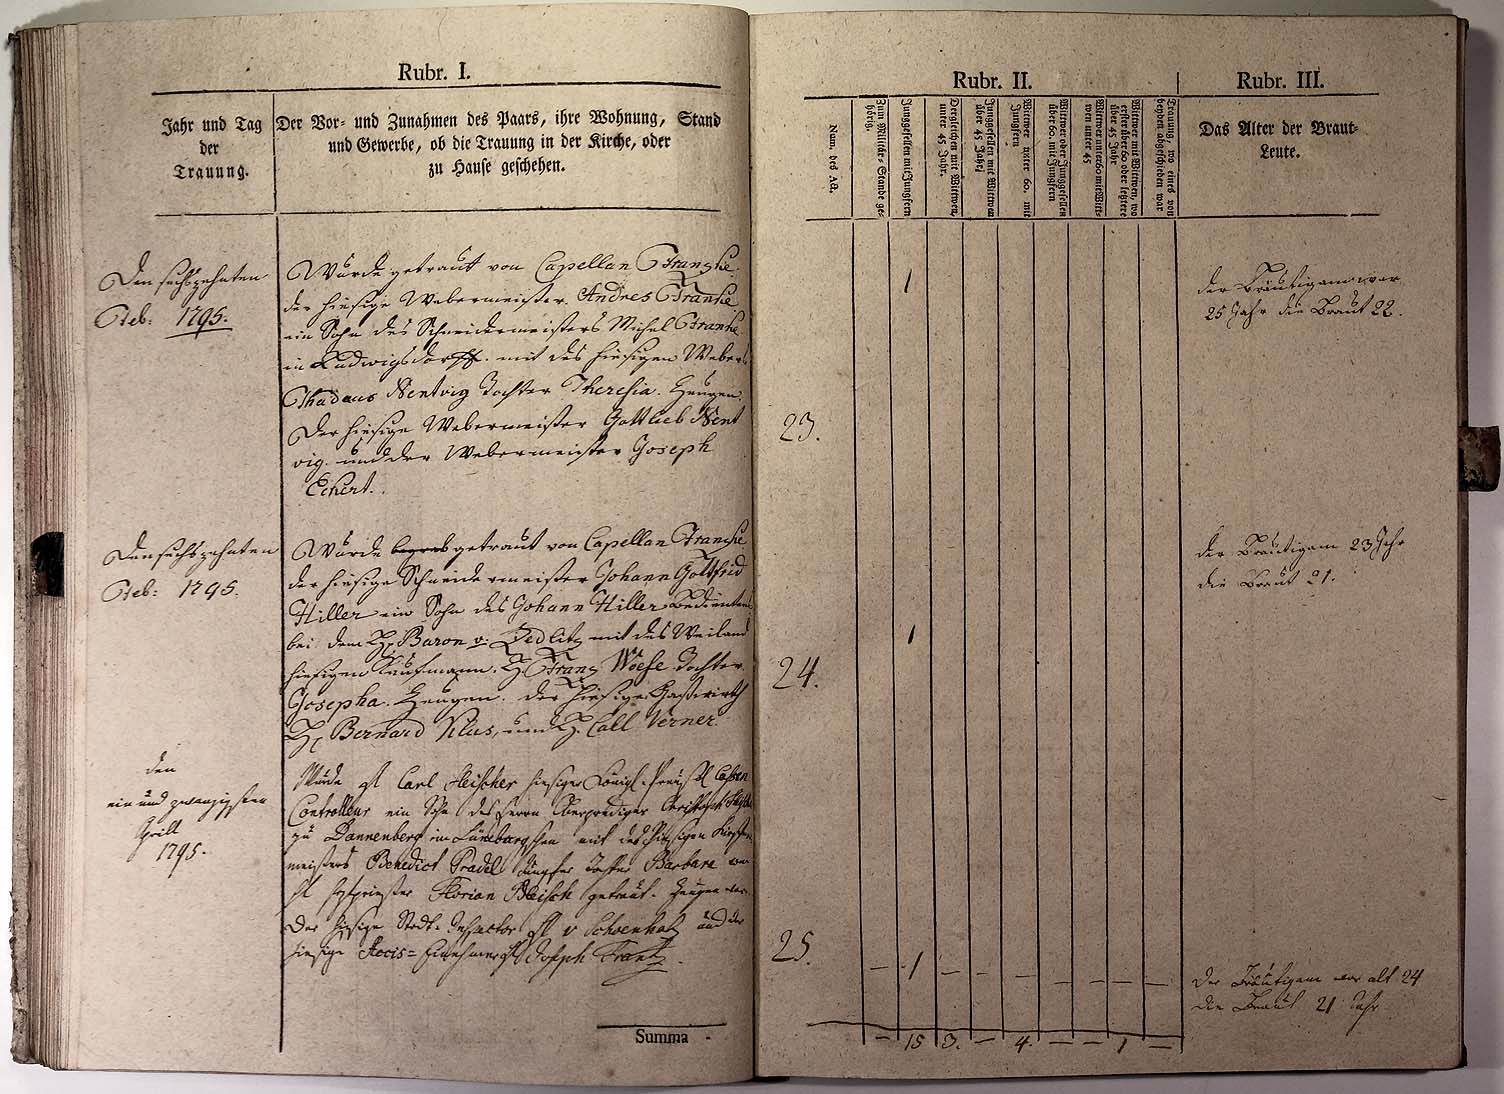 Rubr. I.
Jahr und Tag
der
Trauung.
Der Vor- und Zunahmen des Paars, ihre Wohnung, Stand
und Gewerbe, ob die Trauung in der Kirche, oder
zu Hause geschehen.
Den sechszehnten
Feb: 1795.
Wurde getraut von Capellan Franzke
der hiesige Webermeister Andres Franke
ein Sohn des Schneidermeisters Michel Franke
in Ludwigsdorff. mit des hiesigen Webers
Thadaus Nentvig Tochter Theresia. Zeugen.
Der hiesige Webermeister Gottlieb Nent
vig. und der Webermeister Joseph
Eckert.
Den sechszehnten
Feb: 1795.
Wurde getraut von Capellan Francke
der hiesige Schneidermeister Johann Gottfrid
Hiller ein Sohn des Johann Hiller Bedienten
bei dem H. Baron v. Zedlitz mit des Weiland
hiesigen Kaufmann. H. Franz Woese Tochter
Josepha. Zeugen. der hiesige Gastwirth
H. Bernard Klus, und H. Carl Verner.
den
ein und zwanzigsten
Aprill
1795.
Wurde H Carl Fleischer hiesiger Königl. Preuß Cassen
Controlleur ein Sohn des Herrn Oberprediger
zu Dannenberg im Lüneburgschen mit des hiesigen
meisters Benedict Pradel Jungfer Tochter Barbara von
H Florian Bleisch getraut. Zeugen war
Der hiesige Stadt-Inspector H v Schoenholz und der
hiesige Accis-Einehmer H Joseph Krantz.
Summa
Rubr. II.
Num. des Act.
Zum Militär-Stande gehörig.
Junggesellen mit Jungfern
Dergleichen mit Wittwen, unter 45 Jahr.
Junggesellen mit Wittwen über 45 Jahr.
Wittwer unter 60. mit Jungfern
Wittwer oder Junggesellen über 60. mit Jungfern
Wittwer unter 60 mit Wittwen unter 45
Wittwer mit Wittwen, wo erster über 60 oder letztere über 45 Jahr
Trauung, wo eines von beyden abgeschieden war
1
23.
1
24.
25.
– 1 – – – – – – –
– 15 3. – 4. – – 1 –
Rubr. III.
Das Alter der Braut-
Leute.
der Bräutigam war
25 Jahr die Braut 22.
der Bräutigam 23 Jahr
die Braut 21.
Der Bräutigam war alt 24
die Braut 21 Jahr